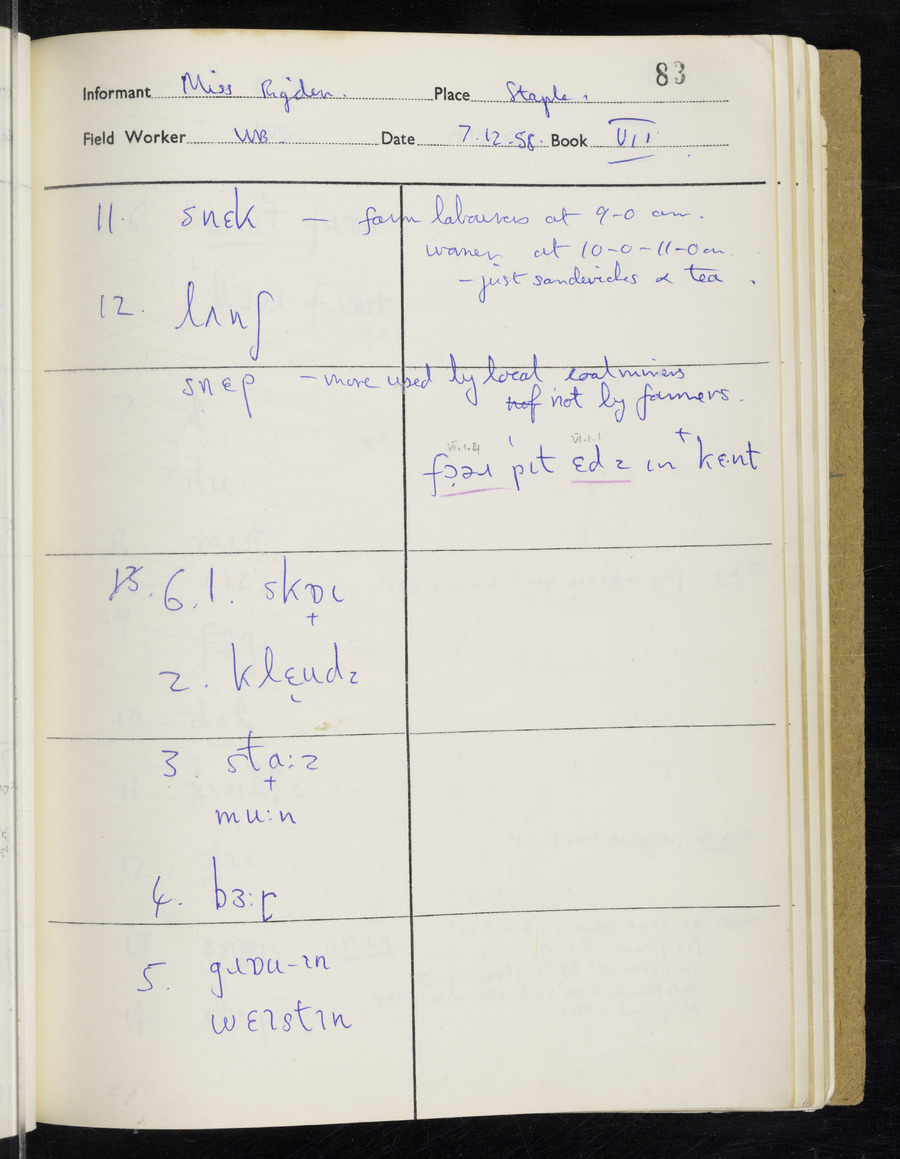 83
Informant Miss Rigden. Place Staple.
Field Worker WB Date 7.12.58. Book VII
11. snɛk – farm labourers at 9-0 am.
women at 10-0-11-0 am.
– just sandwiches & tea.
12. lʌnʃ
snɛp – more used by local coalminers
not by farmers.
VII.1.1
fɔ̣əɹ pɪt ɛdz ɪn kɛnt
6.1. skɒɪ
2. klɛ̣udz
3. sta:z
mu:n
4. bɜ:ɽ
5. gɹɒu-ɪn
wɛɪstɪn